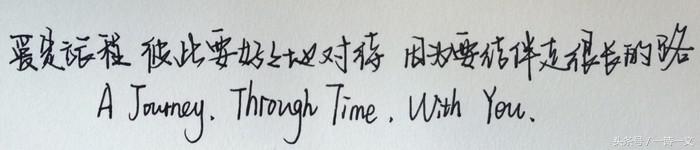 爱是旅程 彼此要好好地对待 因为要结伴走很长的路
A Journey, Through Time, With You.
头条号 / 一诗一文